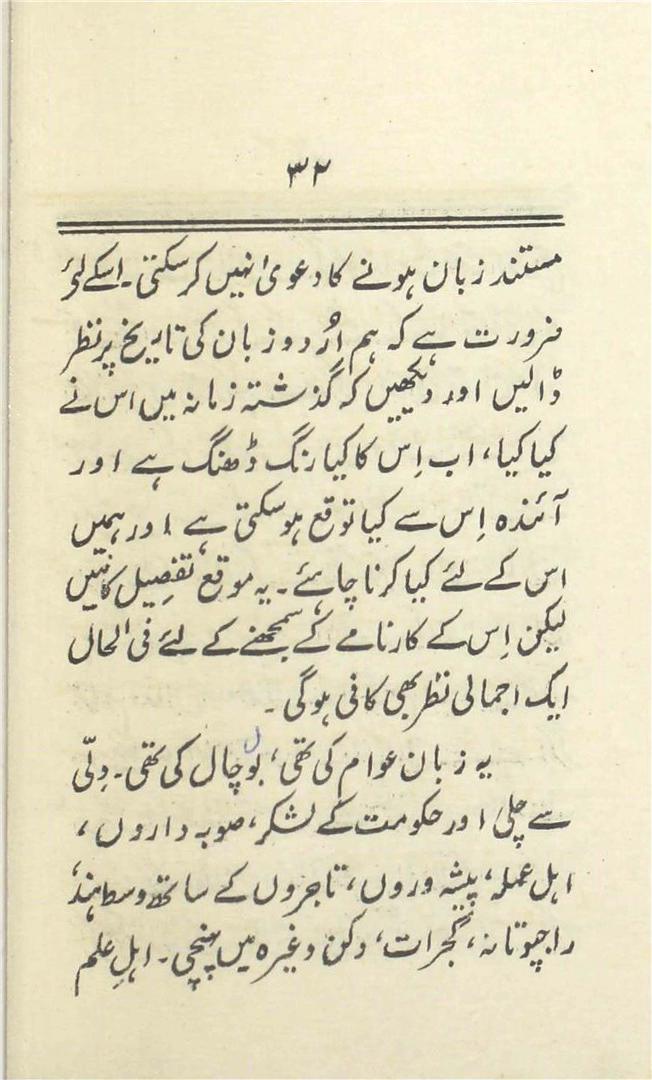 ۳۲
مستند زبان ہونے کا دعویٰ نہیں کر سکتی۔ اسکے لئے
ضرورت ہے کہ ہم اُردو زبان کی تاریخ پر نظر
ڈالیں اور دیکھیں کہ گذشتہ زمانہ میں اس نے
کیا کیا، اب اِس کا کیا رنگ ڈھنگ ہے اور
آئندہ اِس سے کیا توقع ہو سکتی ہے اور ہمیں
اس کے لئے کیا کرنا چاہئے۔ یہ موقع تفصیل کا نہیں
لیکن اِس کے کارنامے کے سمجھنے کے لئے فی الحال
ایک اجمالی نظر بھی کافی ہوگی۔
یہ زبان عوام کی تھی، بول چال کی تھی۔ دِلّی
سے چلی اور حکومت کے لشکر، صوبہ داروں،
اہل عملہ، پیشہ وروں، تاجروں کے ساتھ وسط ہند،
راجپوتانہ، گجرات، دکن وغیرہ میں پہنچی۔ اہلِ علم